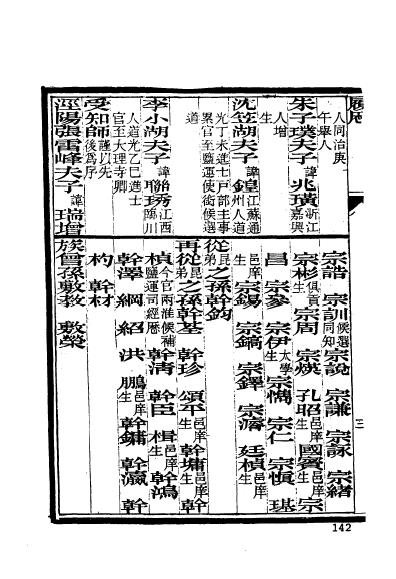 履歷
人同治庚
午舉人
朱子璞夫子諱兆璜浙江嘉興
人增
生
沈笠湖夫子諱鍠江蘇通州人道
光丁未進士戶部主事
累官至鹽運使銜候選
道
李小湖夫子諱聯琇江西臨川
人道光乙巳進士
官至大理寺卿
受知師謹以先後為序
涇陽張雷峰夫子諱瑞增
宗誥 宗訓候選同知宗說 宗謙 宗詠 宗緒
宗彬俱貢生宗周 宗煐 孔昭邑庠生國賓邑庠生宗
昌 宗參 宗伊太學生宗儁 宗仁 宗愼 堪
邑庠生宗錫 宗鎬 宗鐸 宗濤 廷楨邑庠生
從昆弟之孫幹鈞
再從昆弟之孫幹基 幹珍 頌平邑庠生幹墉邑庠生幹
楨今官兩淮候補鹽運司經歷幹清 幹臣 楫邑庠生幹鴻
幹澤 綱 紹 洪 鵬邑庠生幹鏞 幹瀛 幹
杓 幹材
族曾孫敷教 敷榮
三
142